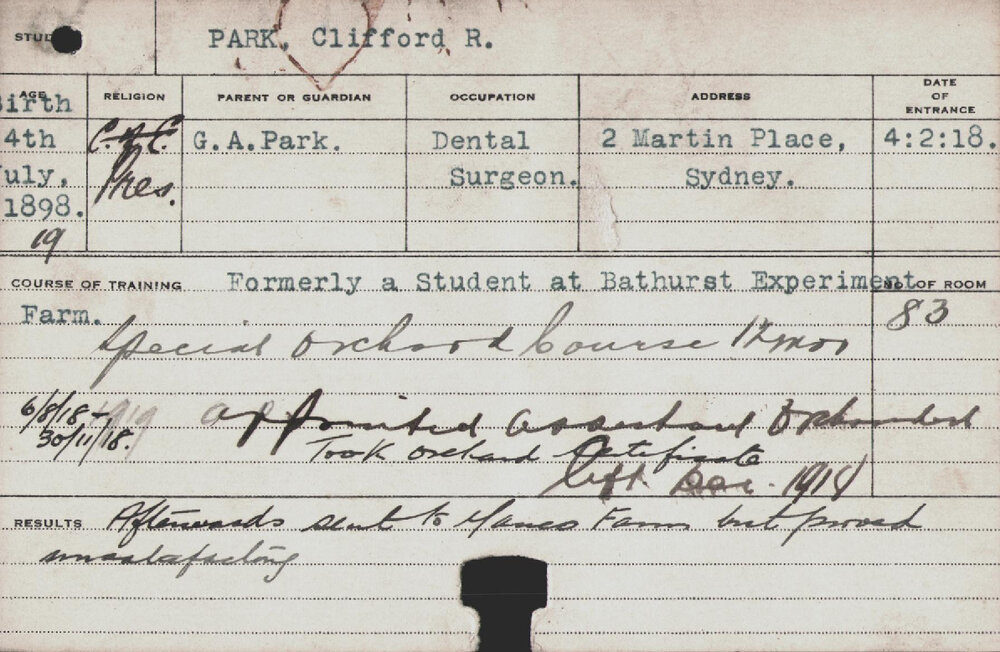 STUD PARK, Clifford R.
AGE RELIGION PARENT OR GUARDIAN OCCUPATION ADDRESS DATE OF ENTRANCE
Birth
4th C. of E. G.A.Park. Dental 2 Martin Place, 4:2:18.
July, Pres. Surgeon. Sydney.
1898.
19
COURSE OF TRAINING Formerly a Student at Bathurst Experiment NO. OF ROOM
Farm. 83
Special Orchard Course 12 mos
6/8/18 – 1919 appointed assistant Orchardist
30/11/18. Took Orchard Certificate
left Dec. 1918
RESULTS Afterwards sent to Farm but proved
unsatisfactory